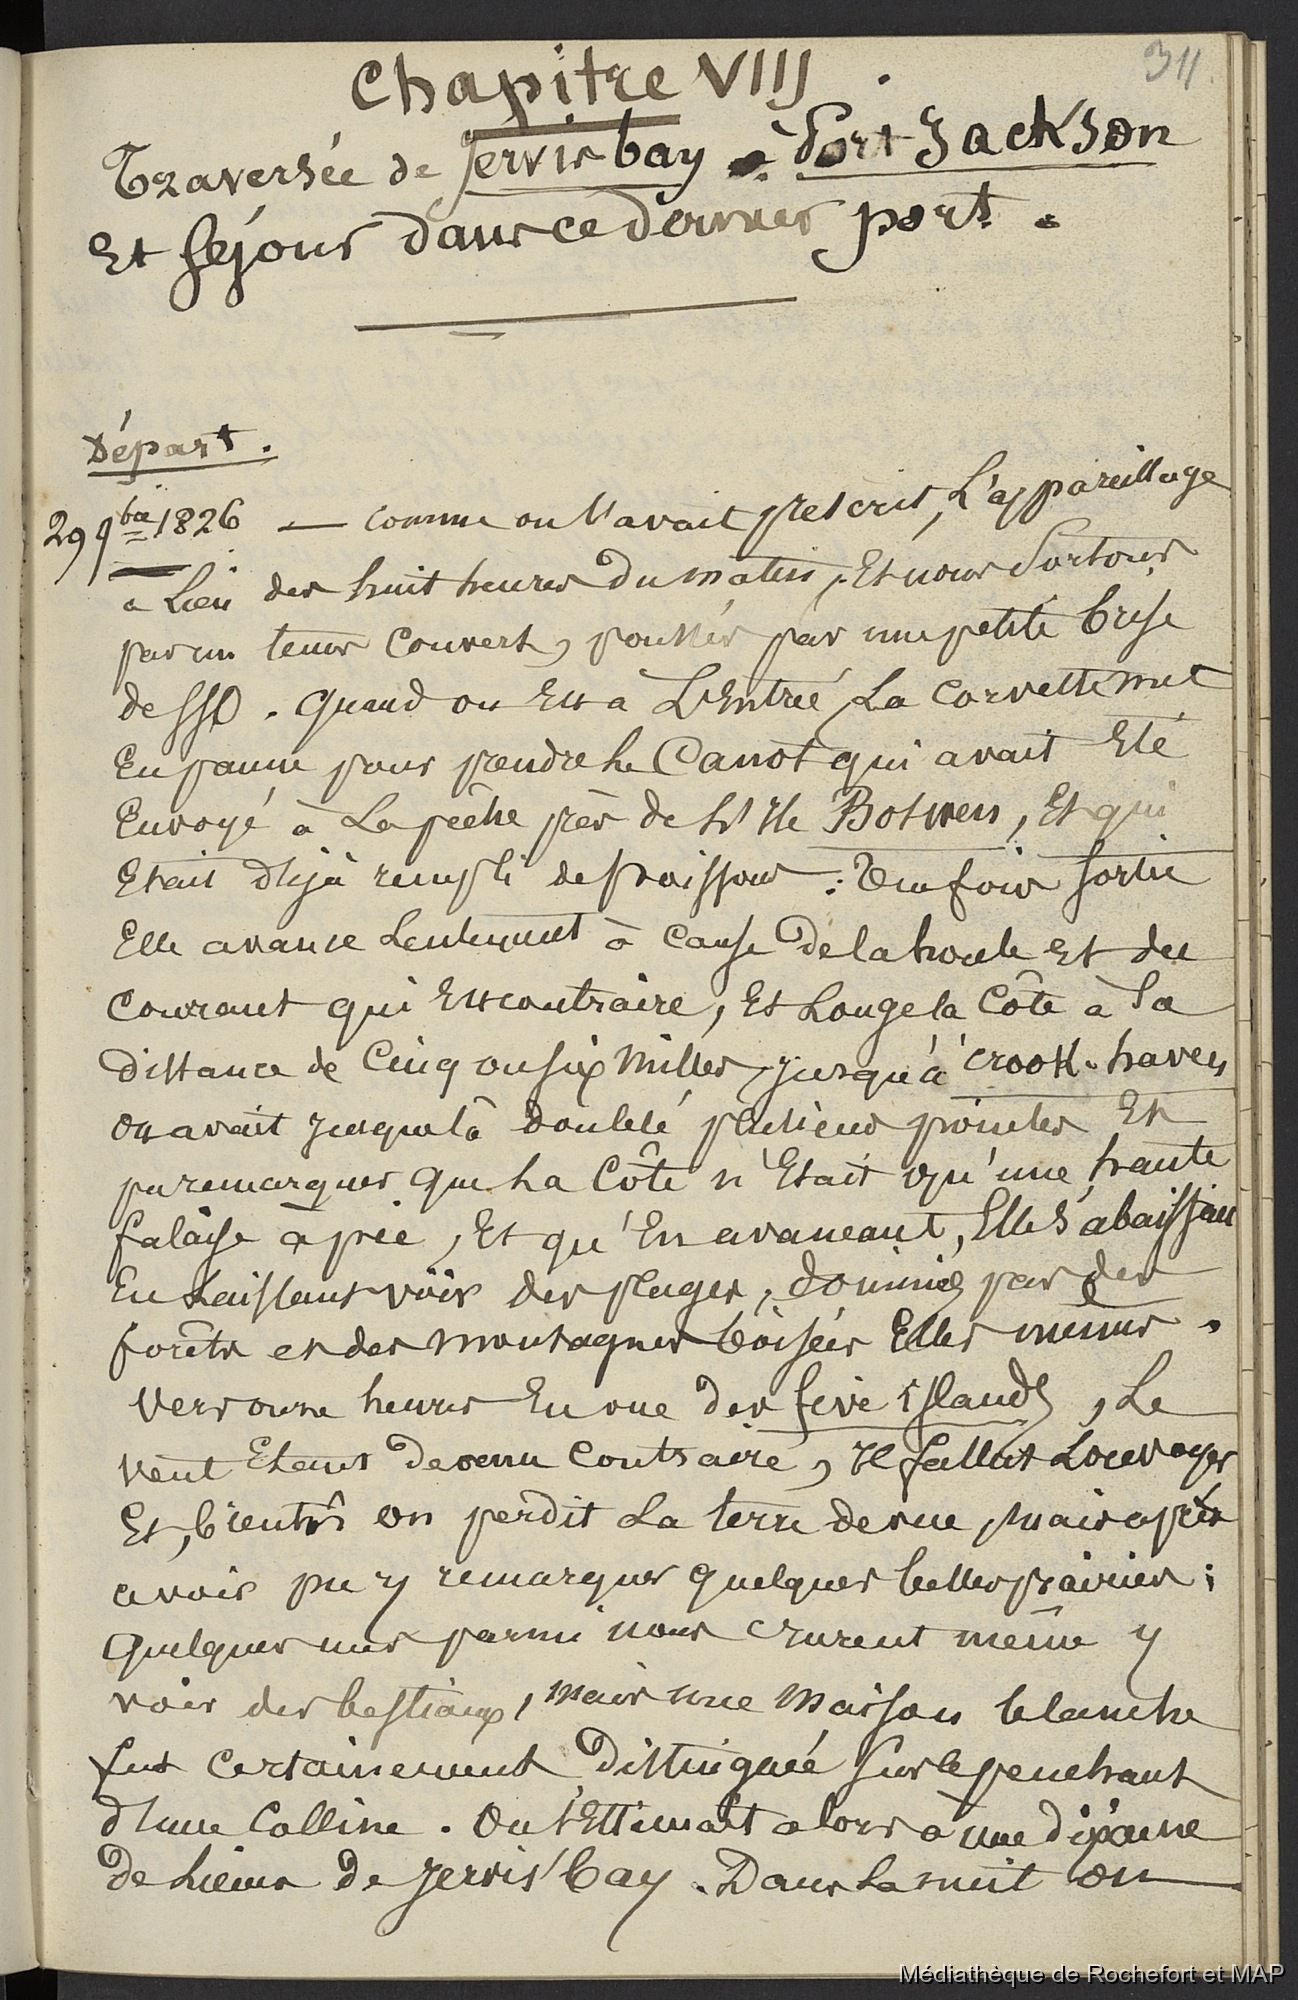 311
Chapitre VIII
Traversée de Jervis bay à Port Jackson
Et séjour dans ce dernier port.
Départ.
29 9bre 1826 — comme on l'avait prescrit, L'appareillage
a Lieu dès huit heures du matin, Et nous Sortons
par un tems couvert, poussés par une petite brise
de SSO. quand on Est à L'Entrée, La corvette met
En panne pour prendre Le Canot qui avait Eté
Envoyé à La pêche près de L'Ile Botwen, Et qui
Etait déjà rempli de poissons : Une fois sortie
Elle avance Lentement à cause de la houle et du
courant qui Est contraire, Et Longe la Côte à la
distance de Cinq ou six milles, jusqu'à Crook-haven
on avait jusque là doublé plusieurs pointes Et
pu remarquer que La Côte n'Etait qu'une haute
falaise à pic, Et qu'En avancant, Elle s'abaissait
En Laissant voir des plages, dominés par des
forêts et des montagnes boisées Elles mêmes.
Vers onze heures En vue des five islands, Le
vent Etant devenu contraire, Il fallut Louvoyer
Et, bientôt on perdit La terre de vue, mais après
avoir pu y remarquer quelques belles prairies ;
quelques uns parmi nous crurent même y
voir des bestiaux, mais une maison blanche
fut certainement distinguée sur le penchant
d'une Colline. On s'Estimait alors à une dixaine
de Lieues de Jervis' bay. Dans La nuit on
Médiathèque de Rochefort et MAP